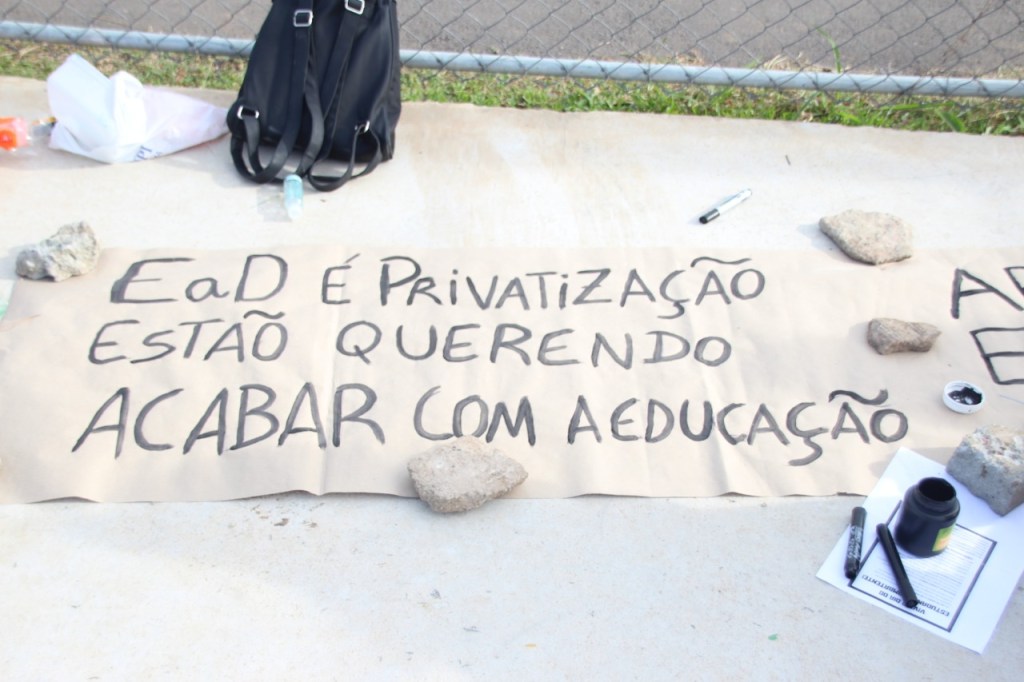 EaD É PRiVATiZAÇÃO
ESTÃO QUERENDO
ACABAR COM A EDUCAÇÃO
A
E